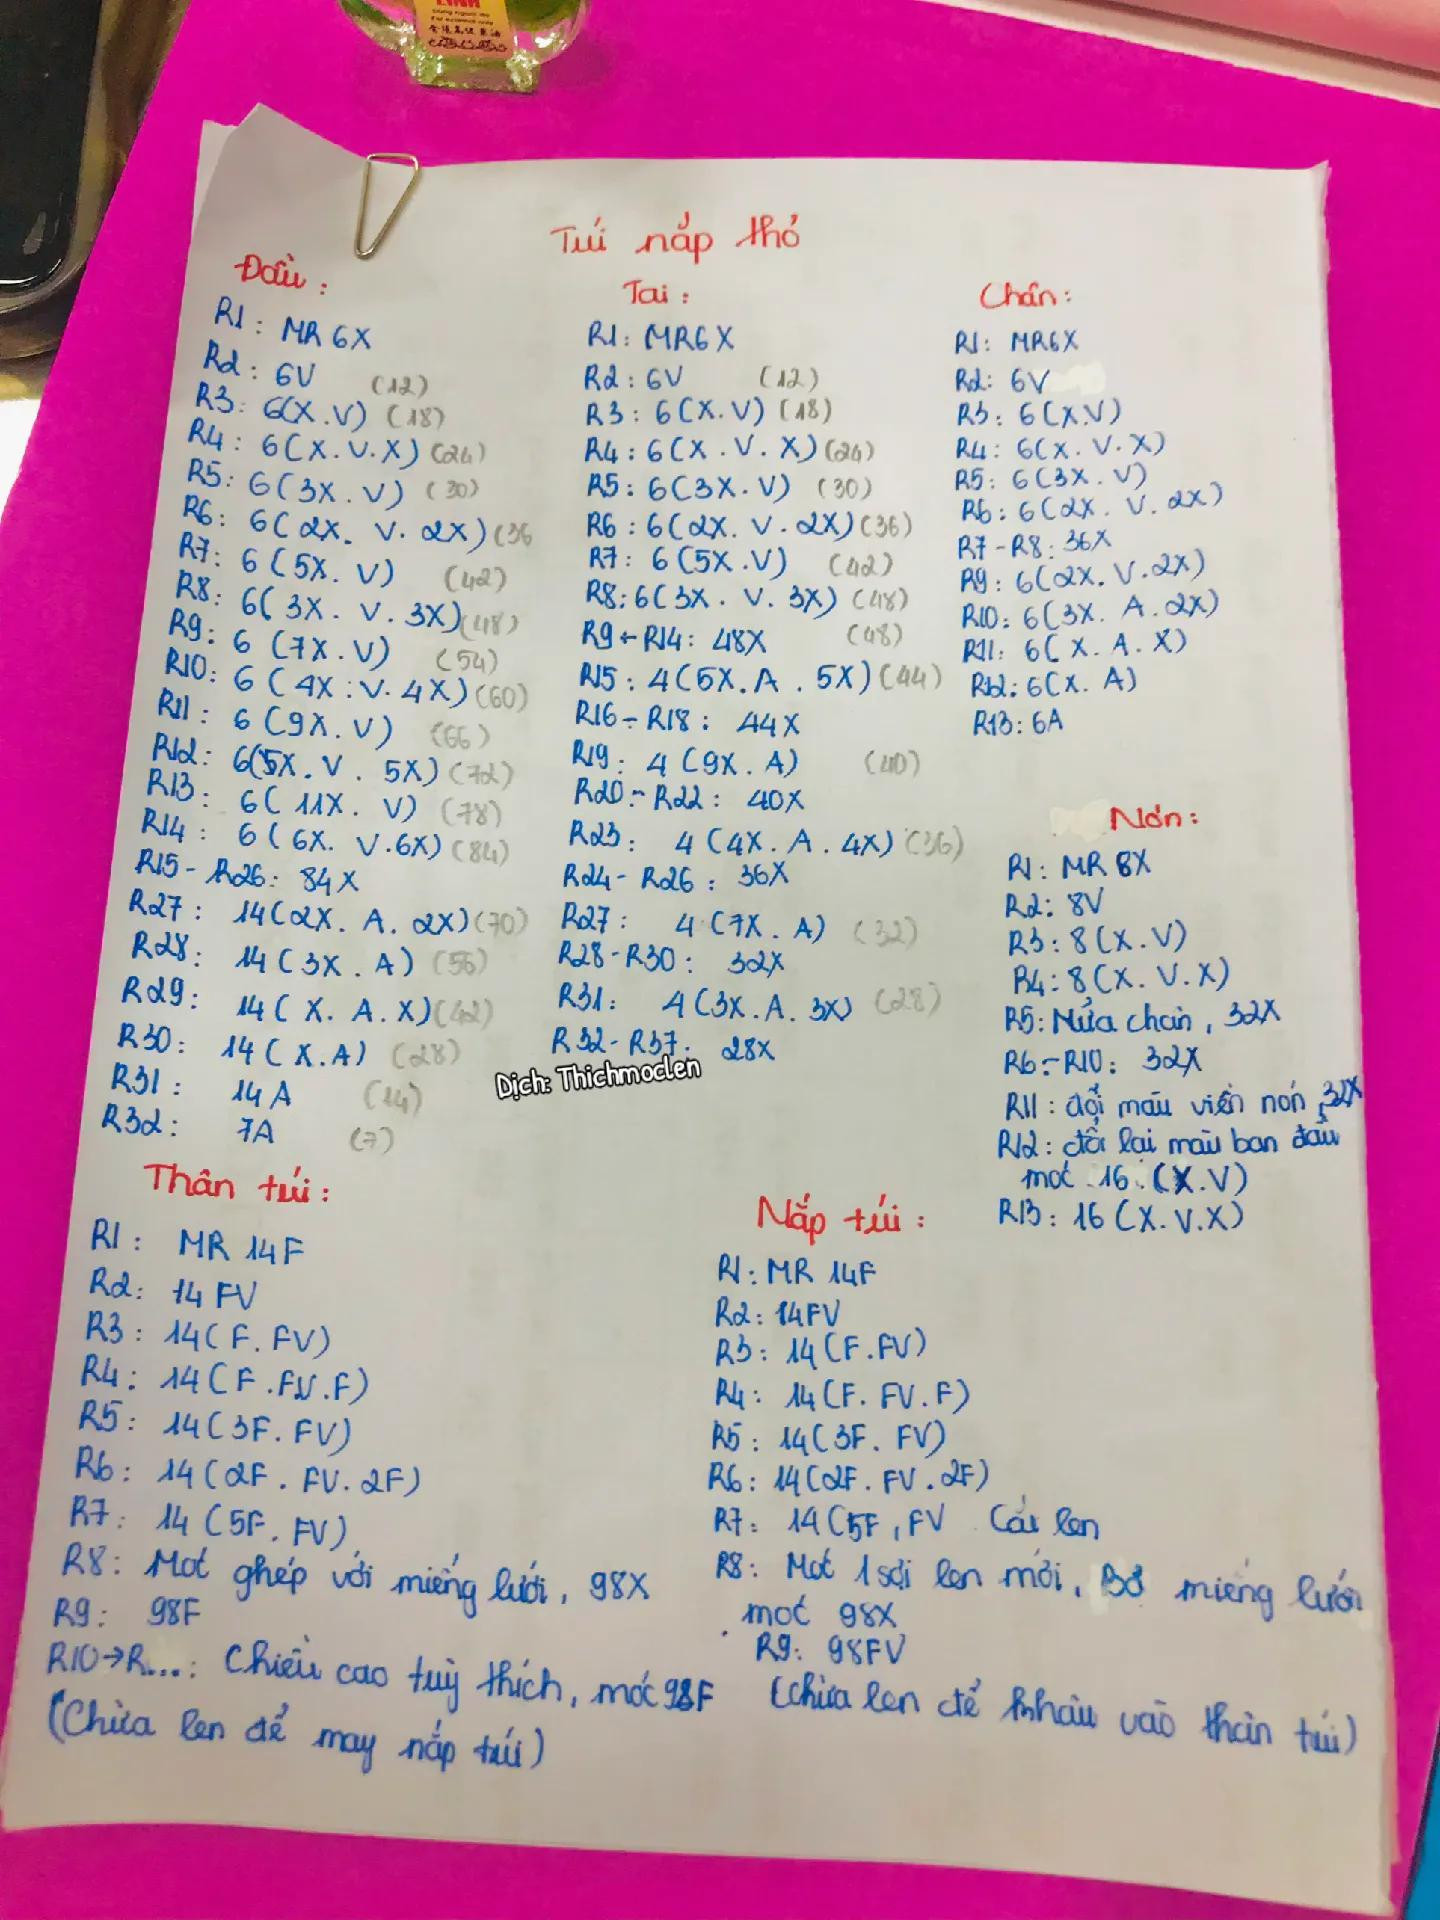 Túi nắp thỏ
Đầu:
R1: MR 6X
R2: 6V (12)
R3: 6(X.V) (18)
R4: 6(X.V.X) (24)
R5: 6(3X.V) (30)
R6: 6(2X.V.2X) (36
R7: 6(5X.V) (42)
R8: 6(3X.V.3X) (48)
R9: 6(7X.V) (54)
R10: 6(4X:V.4X) (60)
R11: 6(9X.V) (66)
R12: 6(5X.V.5X) (72)
R13: 6(11X.V) (78)
R14: 6(6X.V.6X) (84)
R15-R26: 84X
R27: 14(2X.A.2X) (70)
R28: 14(3X.A) (56)
R29: 14(X.A.X) (42)
R30: 14(X.A) (28)
R31: 14A (14)
R32: 7A (7)
Tai:
R1: MR6X
R2: 6V (12)
R3: 6(X.V) (18)
R4: 6(X.V.X) (24)
R5: 6(3X.V) (30)
R6: 6(2X.V.2X) (36)
R7: 6(5X.V) (42)
R8: 6(3X.V.3X) (48)
R9-R14: 48X (48)
R15: 4(5X.A.5X) (44)
R16-R18: 44X
R19: 4(9X.A) (40)
R20-R22: 40X
R23: 4(4X.A.4X) (36)
R24-R26: 36X
R27: 4(7X.A) (32)
R28-R30: 32X
R31: 4(3X.A.3X) (28)
R32-R37: 28X
Dịch: Thichmoclen
Chân:
R1: MR6X
R2: 6V
R3: 6(X.V)
R4: 6(X.V.X)
R5: 6(3X.V)
R6: 6(2X.V.2X)
R7-R8: 36X
R9: 6(2X.V.2X)
R10: 6(3X.A.2X)
R11: 6(X.A.X)
R12: 6(X.A)
R13: 6A
Nón:
R1: MR 8X
R2: 8V
R3: 8(X.V)
R4: 8(X.V.X)
R5: Nửa chân, 32X
R6-R10: 32X
R11: đổi màu viền nón, 32X
R12: đổi lại màu ban đầu
móc 16 (X.V)
R13: 16(X.V.X)
Thân túi:
R1: MR 14F
R2: 14FV
R3: 14(F.FV)
R4: 14(F.FV.F)
R5: 14(3F.FV)
R6: 14(2F.FV.2F)
R7: 14(5F.FV)
R8: Móc ghép với miếng lưới, 98X
R9: 98F
R10→R...: Chiều cao tuỳ thích, móc 98F
(Chừa len để may nắp túi)
Nắp túi:
R1: MR 14F
R2: 14FV
R3: 14(F.FV)
R4: 14(F.FV.F)
R5: 14(3F.FV)
R6: 14(2F.FV.2F)
R7: 14(5F,FV Cắt len
R8: Móc 1 sợi len mới, Bỏ miếng lưới
móc 98X
R9: 98FV
(chừa len để khâu vào thân túi)